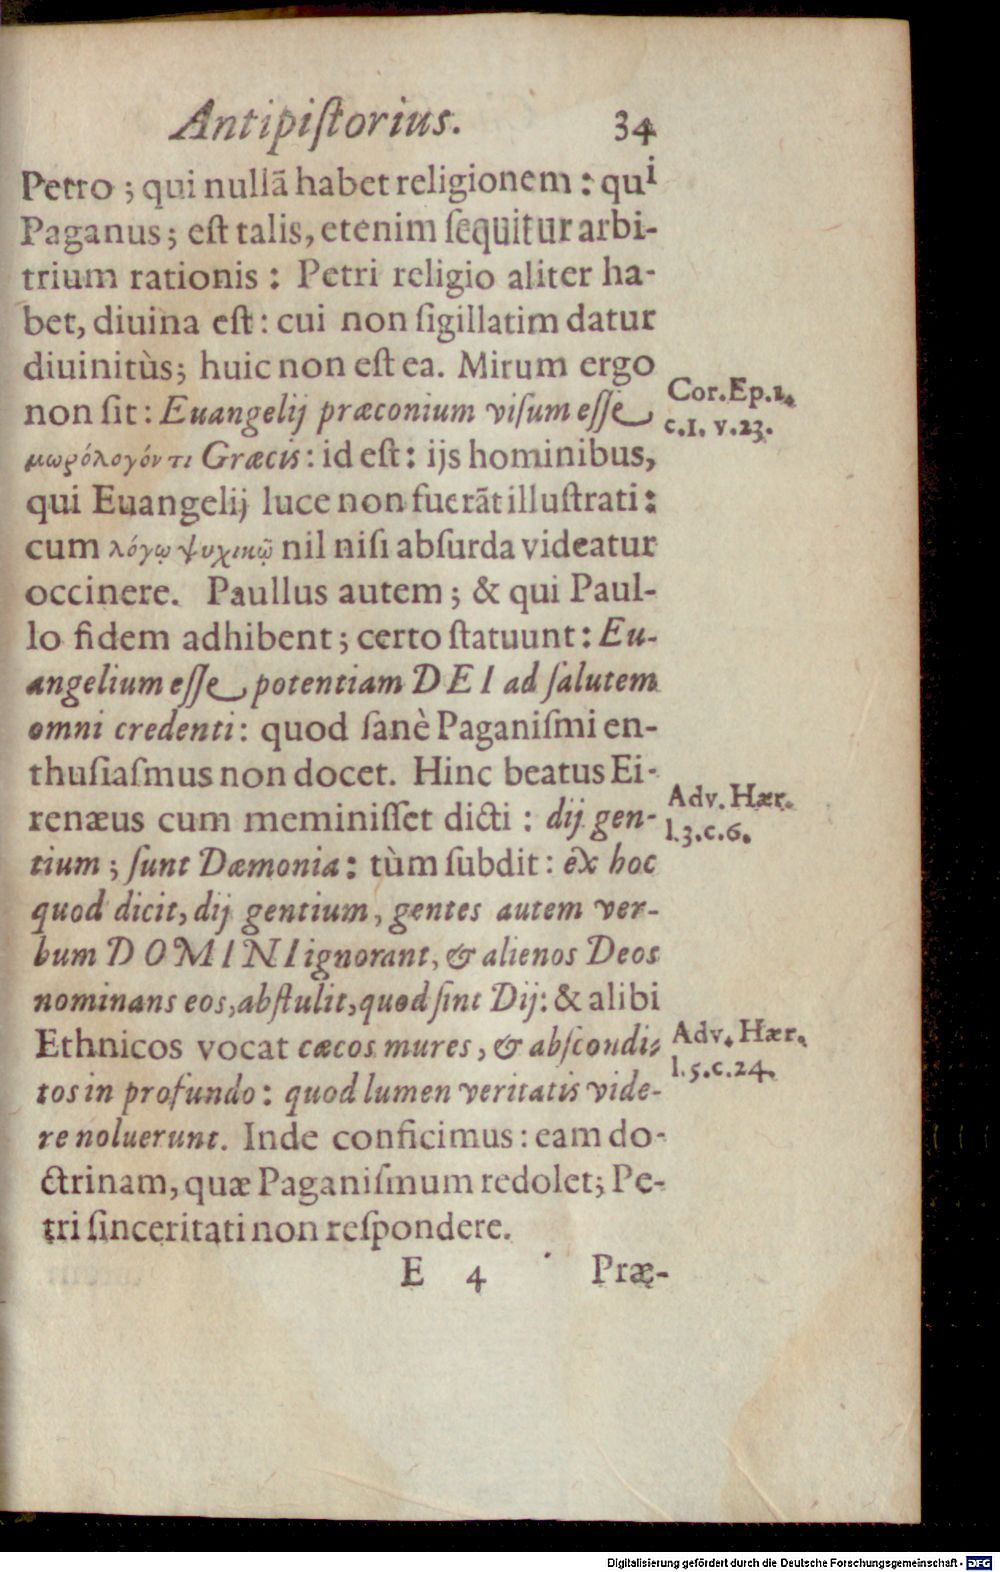 Antipiſtorius. 34
Petro ; qui nullā habet religionem : qui
Paganus ; eſt talis, etenim ſequitur arbi-
trium rationis : Petri religio aliter ha-
bet, diuina eſt : cui non ſigillatim datur
diuinitùs; huic non eſt ea. Mirum ergo
non ſit : Euangelij præconium viſum eſſe
Cor. Ep. 1.
c. 1. v. 23.
μωρόλογόν τι Græcis : id eſt : ijs hominibus,
qui Euangelij luce non fuerāt illuſtrati :
cum λόγῳ ψυχικῷ nil niſi abſurda videatur
occinere. Paullus autem ; & qui Paul-
lo fidem adhibent ; certo ſtatuunt : Eu-
angelium eſſe potentiam DEI ad ſalutem
omni credenti : quod ſanè Paganiſmi en-
thuſiaſmus non docet. Hinc beatus Ei-
renæus cum meminiſſet dicti : dij gen-
Adv. Hær.
l. 3. c. 6.
tium ; ſunt Dæmonia : tùm ſubdit : ex hoc
quod dicit, dij gentium, gentes autem ver-
bum DOMINI ignorant, & alienos Deos
nominans eos, abſtulit, quod ſint Dij : & alibi
Ethnicos vocat cæcos mures, & abſcondi-
Adv. Hær.
l. 5. c. 24.
tos in profundo : quod lumen veritatis vide-
re noluerunt. Inde conficimus : eam do-
ctrinam, quæ Paganiſmum redolet; Pe-
tri ſinceritati non reſpondere.
E 4 Præ-
Digitalisierung gefördert durch die Deutsche Forschungsgemeinschaft - DFG